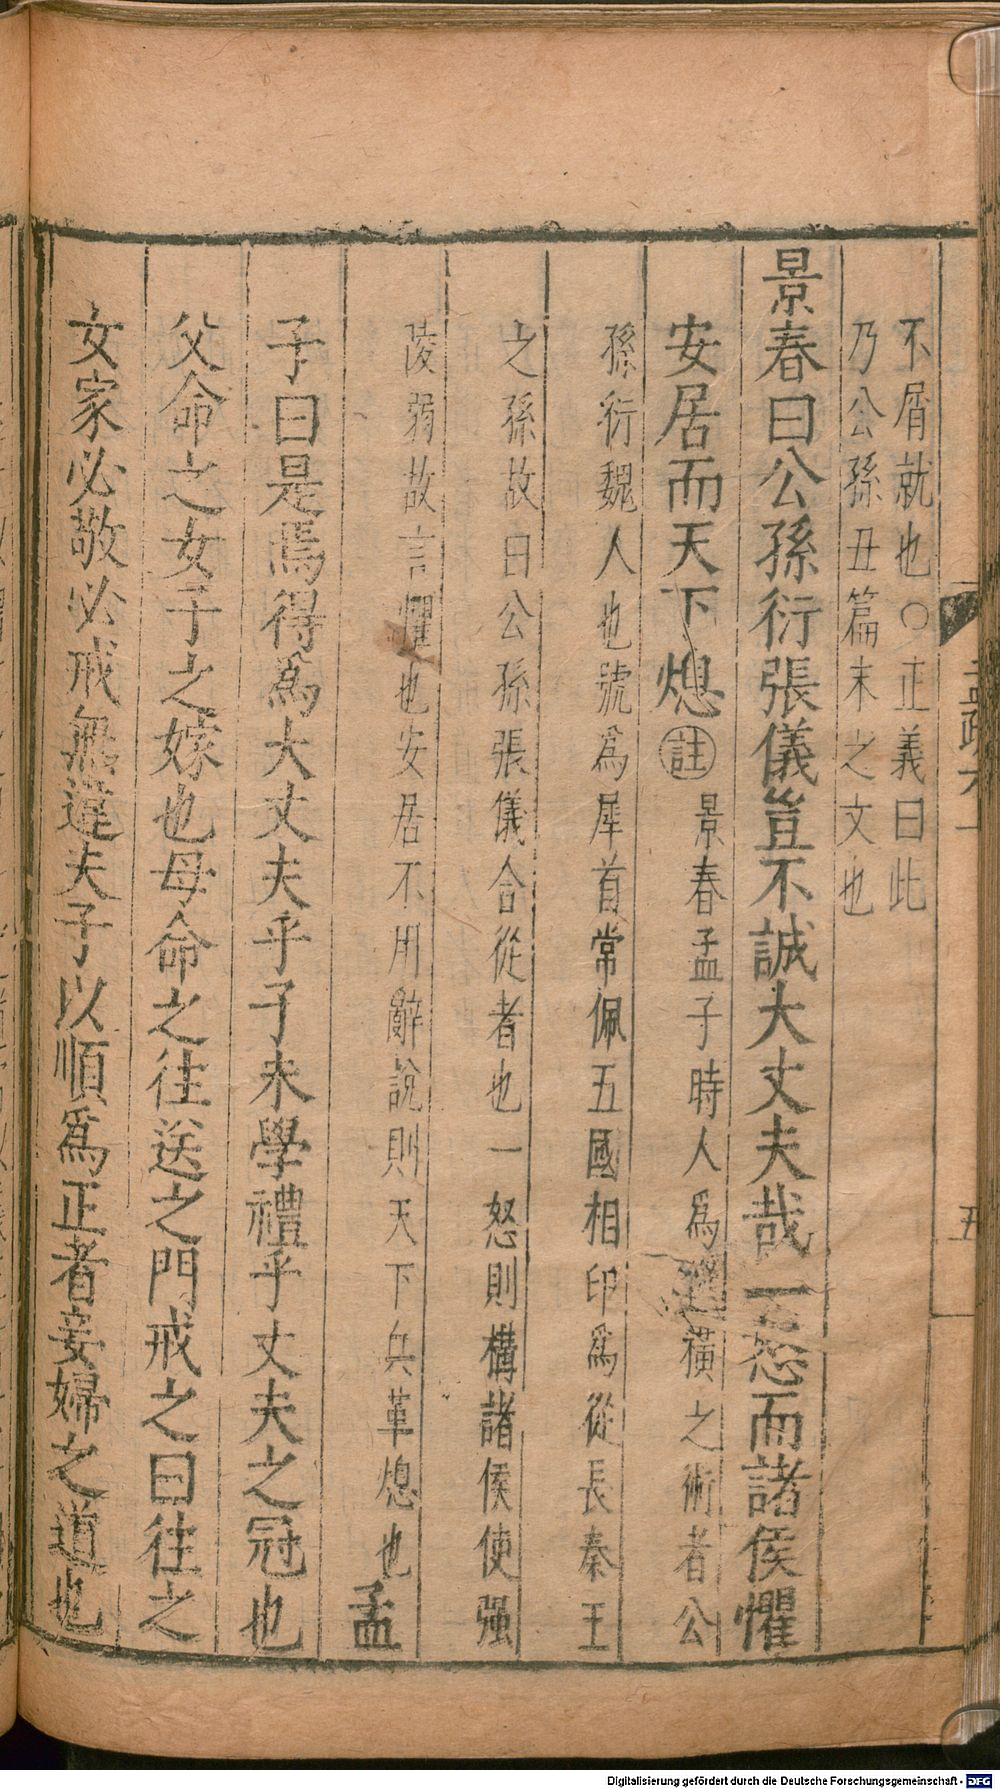 不屑就也○正義曰此
乃公孫丑篇末之文也
景春曰公孫衍張儀豈不誠大丈夫哉一怒而諸侯懼
安居而天下熄註景春孟子時人爲從橫之術者公
孫衍魏人也號爲犀首常佩五國相印爲從長秦王
之孫故曰公孫張儀合從者也一怒則構諸侯使强
陵弱故言懼也安居不用辭說則天下兵革熄也孟
子曰是焉得爲大丈夫乎子未學禮乎丈夫之冠也
父命之女子之嫁也母命之往送之門戒之曰往之
女家必敬必戒無違夫子以順爲正者妾婦之道也
孟疏六上
五
Digitalisierung gefördert durch die Deutsche Forschungsgemeinschaft - DFG